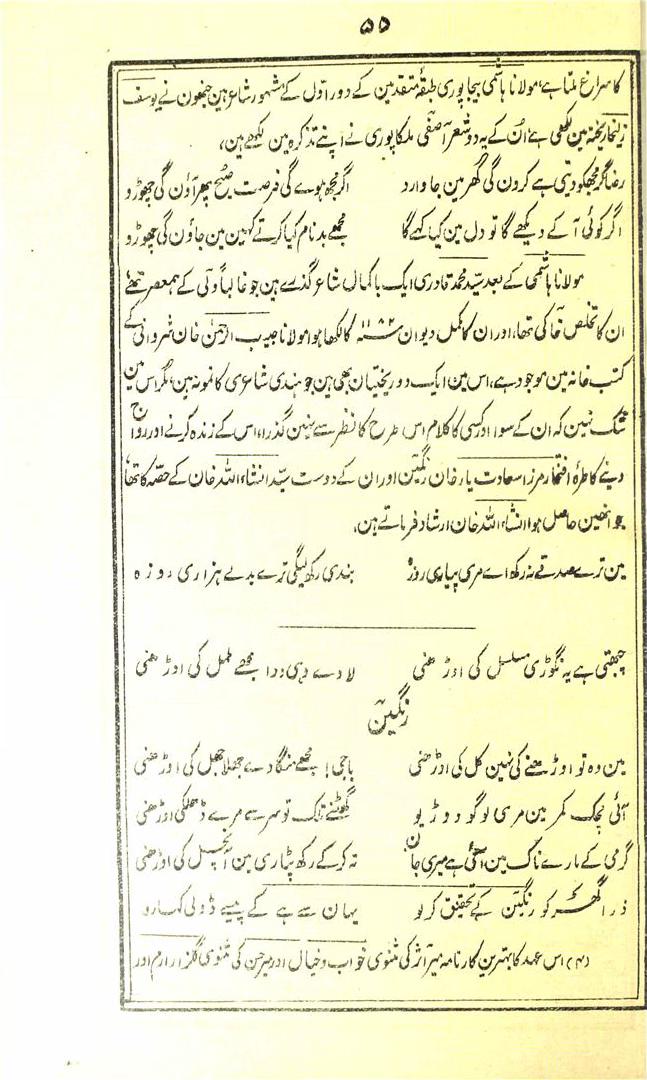 ۵۵
کا سراغ ملتا ہے، مولانا ہاشمی بیجاپوری طبقۂ متقدمین کے دور اول کے مشہور شاعر ہین جنھون نے یوسف
زلیخا ریختہ مین لکھی ہے، اُن کے یہ دو شعر آصفی ملکاپوری نے اپنے تذکرہ مین لکھے ہین،
رضا گر مجھکو دیتی ہے کرون گی گھر مین جا وارد اگر مجھ ہووے گی فرصت صبح پھر آؤن گی چھوڑو
اگر کوئی آ کے دیکھے گا تو دل مین کیا کہے گا مجھے بدنام کیا کرتے کہین مین جاؤن گی چھوڑو
مولانا ہاشمی کے بعد سید محمد قادری ایک باکمال شاعر گذرے ہین جو غالباً ولی کے ہمعصر تھے
ان کا تخلص خاکی تھا، اور ان کا مکمل دیوان ۱۱۸۲ھ کا لکھا ہوا مولانا حبیب الرحمٰن خان شروانی کے
کتب خانہ مین موجود ہے، اس مین ایک دو ریختیان بھی ہین جو ہندی شاعری کا نمونہ ہین، مگر اس مین
شک نہین کہ ان کے سوا اور کسی کا کلام اس طرح کا نظر سے نہین گذرا، اس کے زندہ کرنے اور رواج
دینے کا طرۂ افتخار مرزا سعادت یار خان رنگین اور ان کے دوست سید انشاء اللہ خان کے حصہ کا تھا،
جو انھین حاصل ہوا، انشاء اللہ خان ارشاد فرماتے ہین،
مین ترے صدقے نہ رکھ اے مری پیاری روزہ بندی رکھ لیگی ترے بدلے ہزاری روزہ
چبھتی ہے یہ نگوڑی مسلسل کی اوڑھنی لا دے دہی ددا مجھے ململ کی اوڑھنی
رنگین
مین وہ تو اوڑھنے کی نہین کل کی اوڑھنی باجی! مجھے منگا دے جھلاجھل کی اوڑھنی
آئی لچک کمر مین مری لوگو دوڑیو گھٹنے تک تو سر سے مرے ڈھلکی اوڑھنی
گرمی کے مارے ناک مین آئی ہے میری جان تہ کر کے رکھ پٹاری مین آنچل کی اوڑھنی
ذرا گھر کو رنگین کے تحقیق کر لو یہان سے ہے کے پیسے ڈولی کہارو
(۴) اس عہد کا بہترین کارنامہ میر اثر کی مثنوی خواب و خیال اور میر حسن کی مثنوی گلزار ارم اور